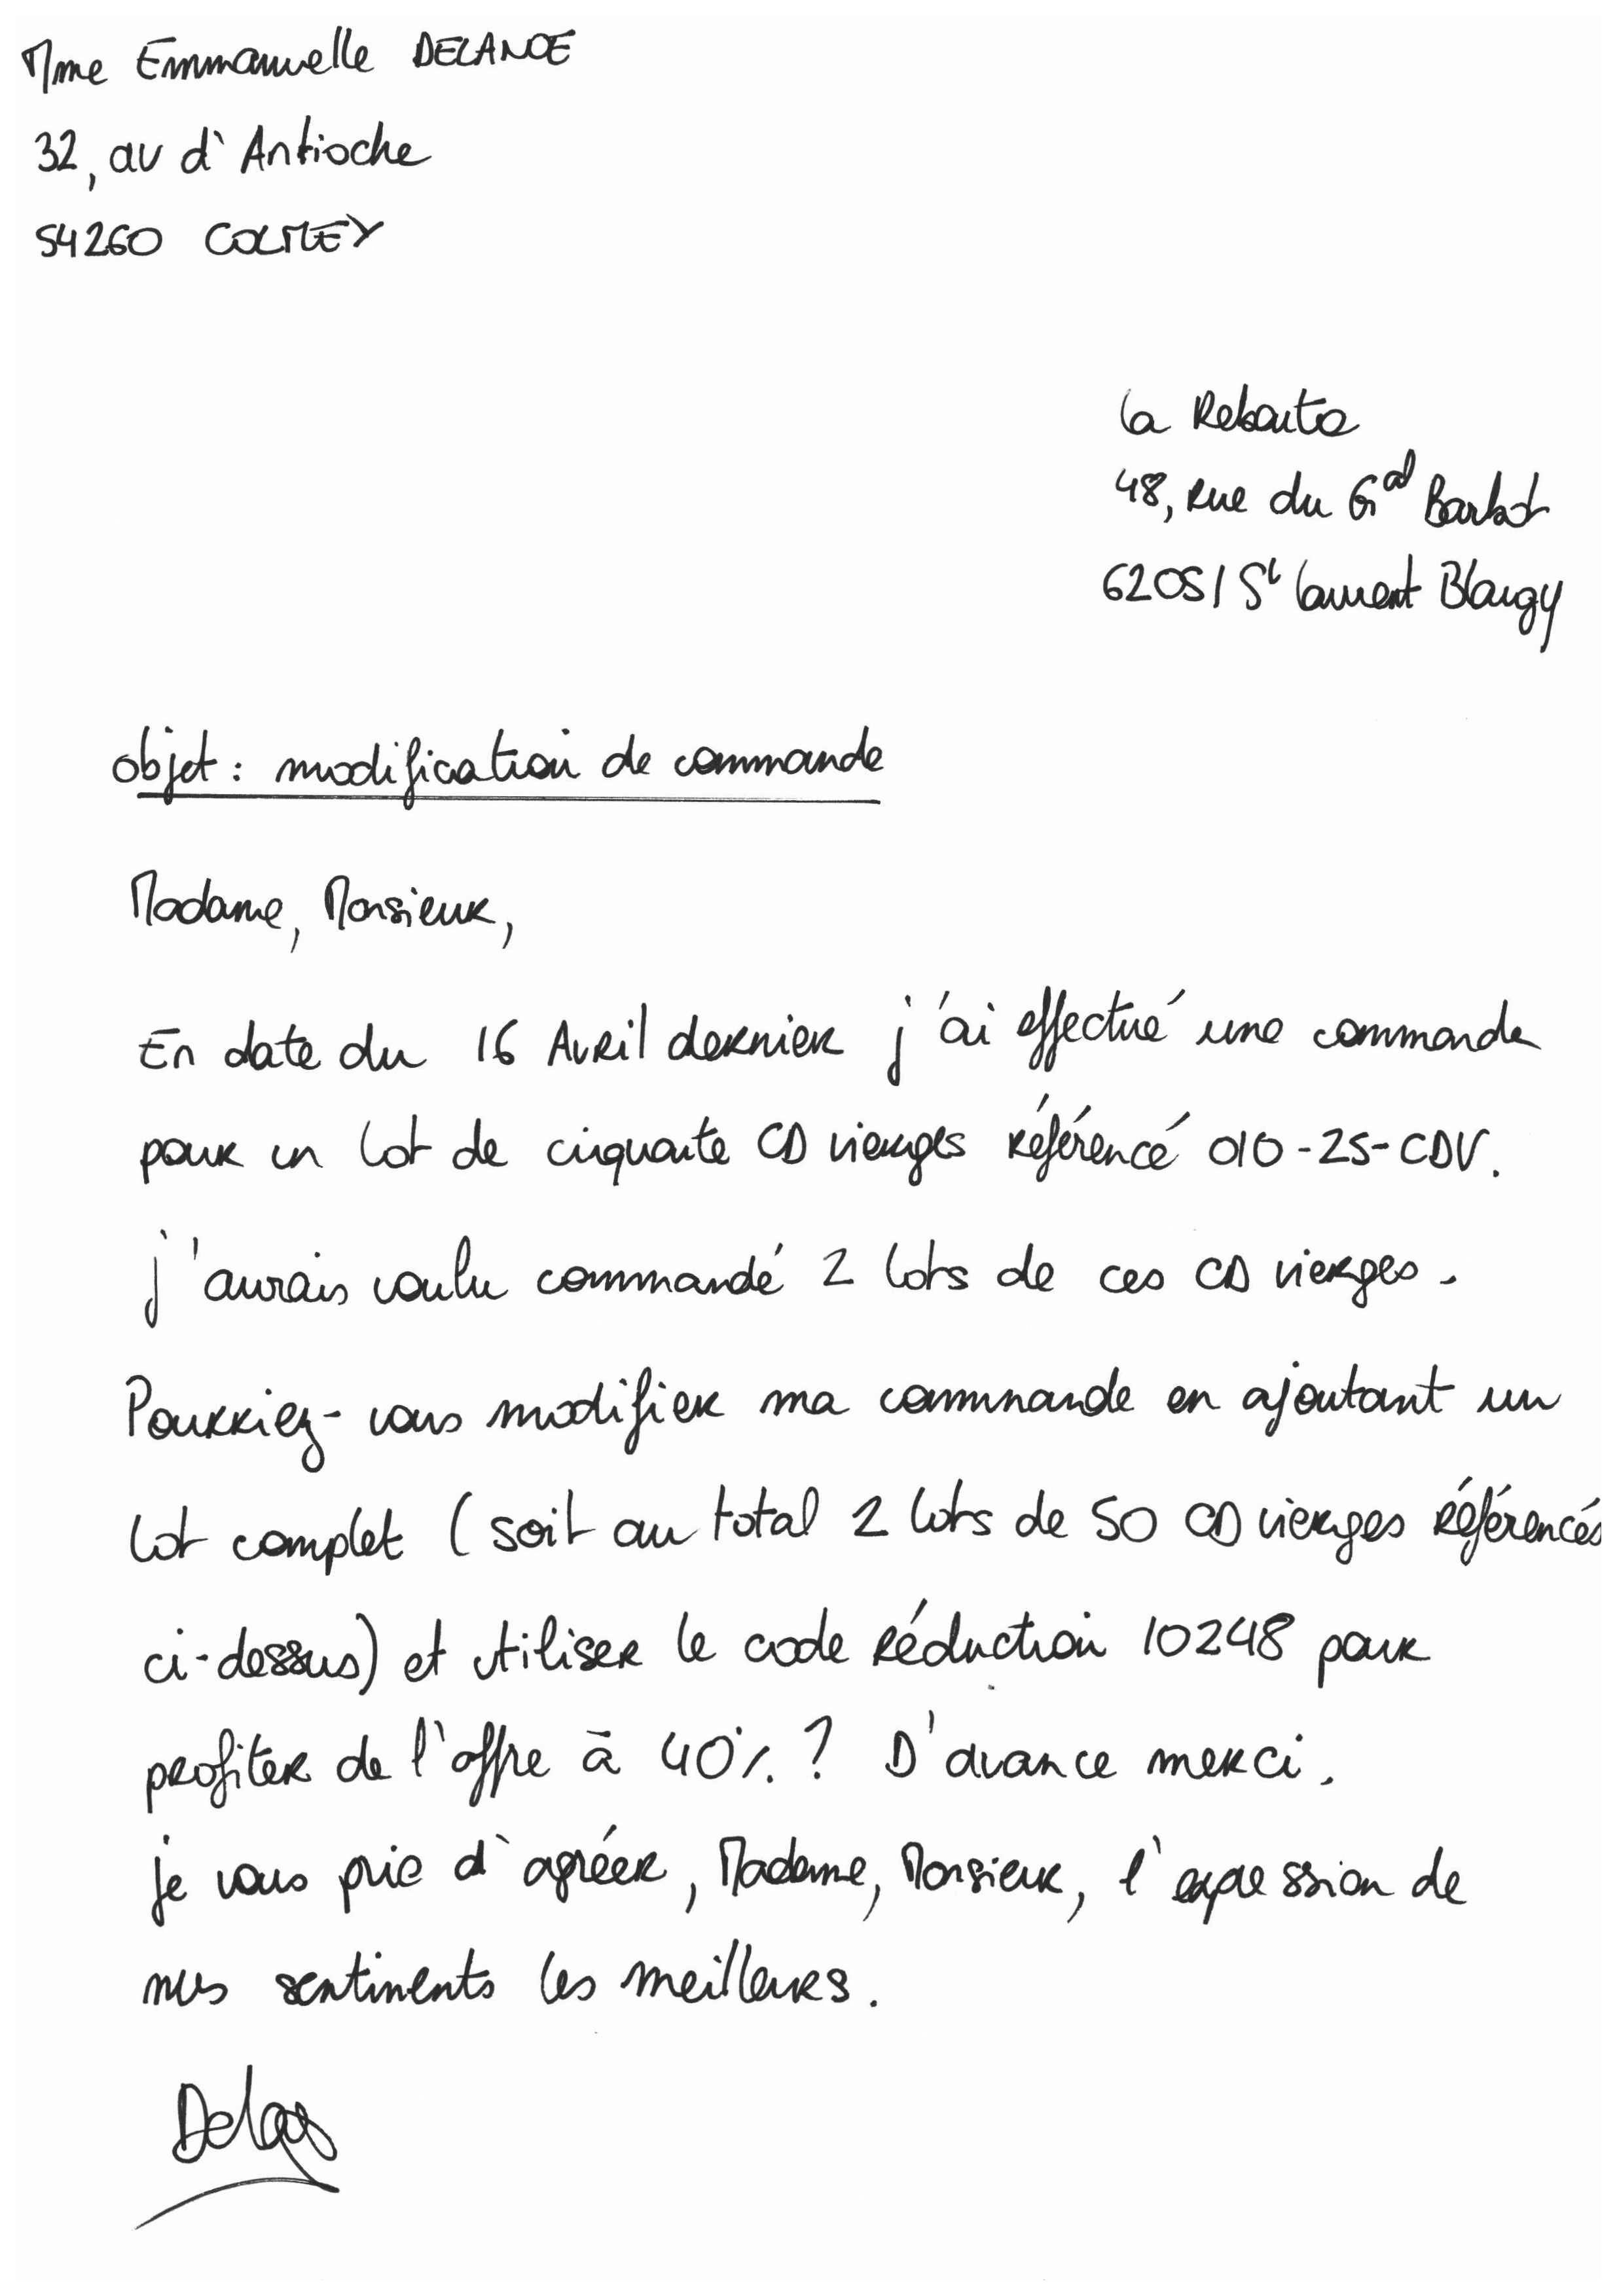 Mme Emmanuelle DELANOE
32, av d'Antioche
54260 COLMEY
La Reboute
48, rue du Gal Barbot
62051 St Laurent Blangy
objet : modification de commande
Madame, Monsieur,
En date du 16 Avril dernier j'ai effectué une commande
pour un lot de cinquante CD vierges référencé 010-25-CDV.
j'aurais voulu commandé 2 lots de ces CD vierges.
Pourriez-vous modifier ma commande en ajoutant un
lot complet (soit au total 2 lots de 50 CD vierges référencés
ci-dessus) et utiliser le code réduction 10248 pour
profiter de l'offre à 40% ? D'avance merci.
je vous prie d'agréer, Madame, Monsieur, l'expression de
mes sentiments les meilleurs.